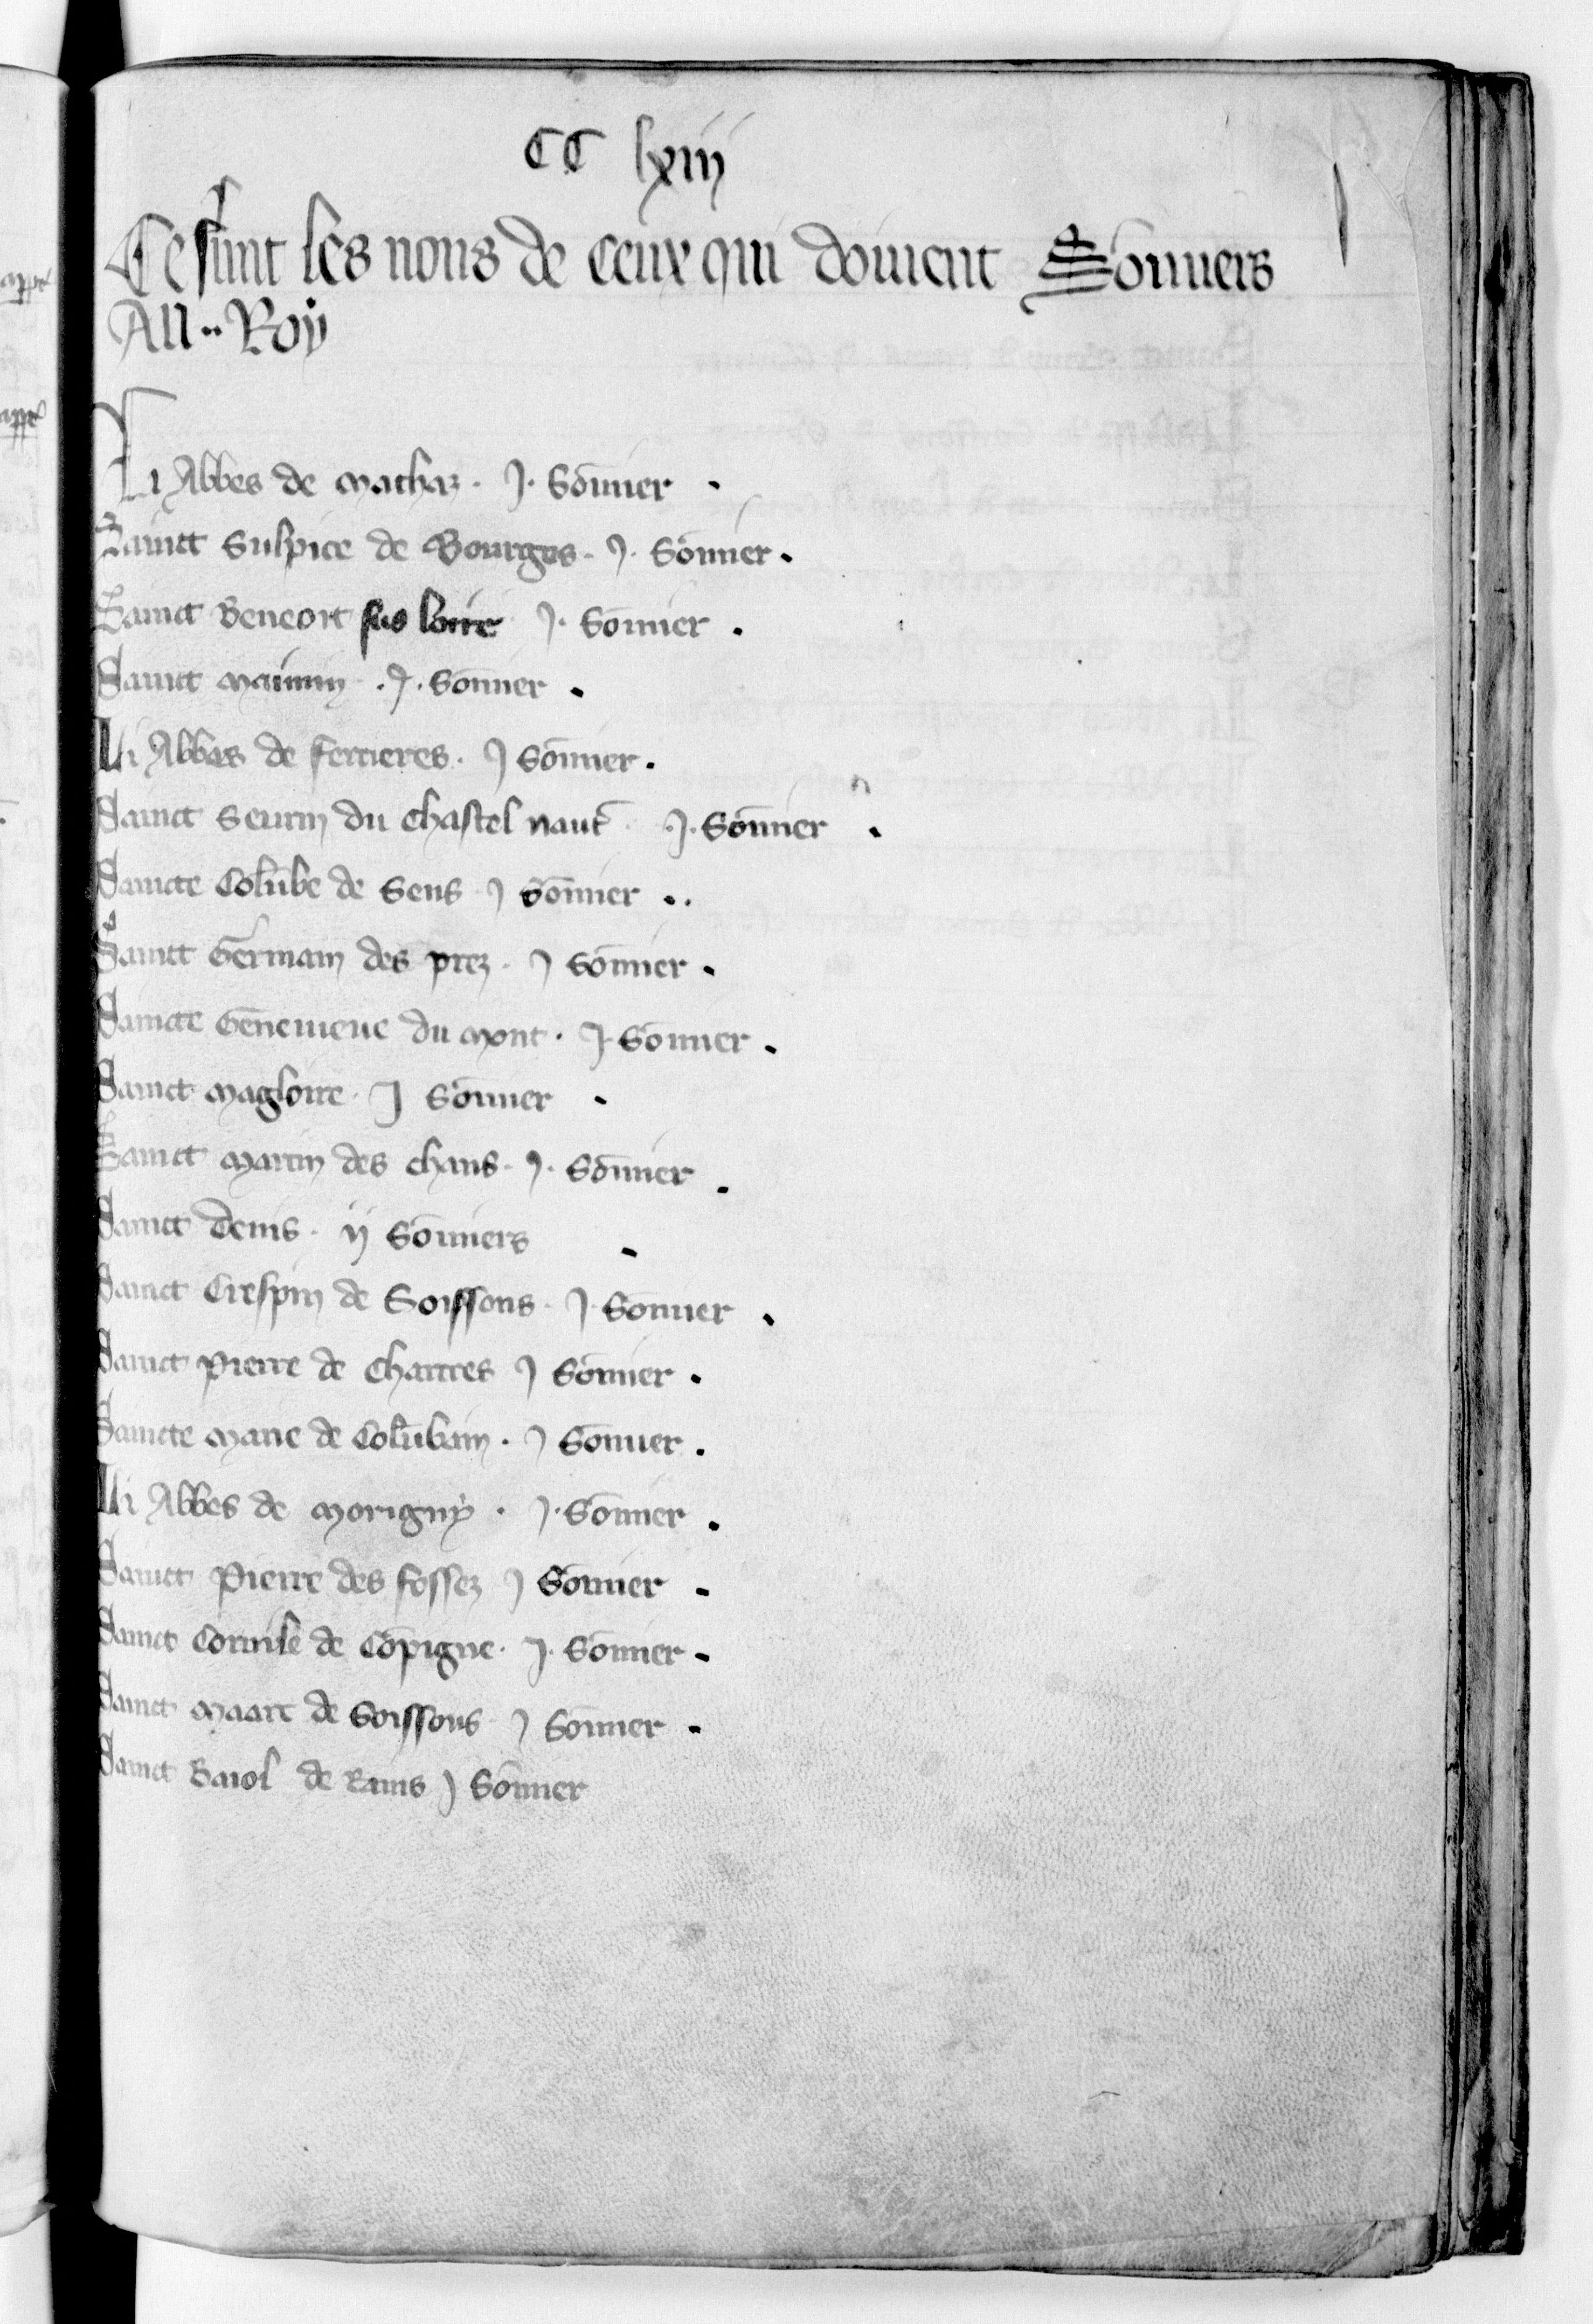 CC lxiij
Ce sunt les nons de ceux qui doivent Sommiers
Au Roy
Li Abbes de Machaz . j . Sōmier .
Sainct Sulpice de Bourges . j . Sōmier .
Sainct Beneoit sus loire j . Sōmier .
Sainct Maimin . j . Sōmier .
Li Abbes de ferrieres . j Sōmier .
Sainct Seurin du chastel naut . j . Sōmier .
Saincte Colūbe de Sens j Sōmier ..
Sainct Germain des prez . j Sōmier .
Saincte Genevieve du Mont . j Sōmier .
Sainct Magloire . j Sōmier .
Sainct Martin des chans . j . Sōmier .
Sainct Denis . ij Sōmiers .
Sainct Crespin de Soissons . j . Sōmier .
Sainct Pierre de Chartres j Sōmier .
Saincte Marie de Colūbain . j Sōmier .
Li Abbes de Morigny . j . Sōmier .
Sainct Pierre des fossez j Sōmier .
Sainct Cornile de Cōpigne . j . Sōmier .
Sainct Maart de Soissons j Sōmier .
Sainct Baiol de Rains j Sōmier